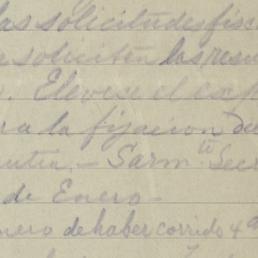 las solicitudes fisc
e soliciten las resu
. Elevese el exp
ra la fijacion de
. — Sarm.to Secr
de Enero —
nero de haber corrido 4 a